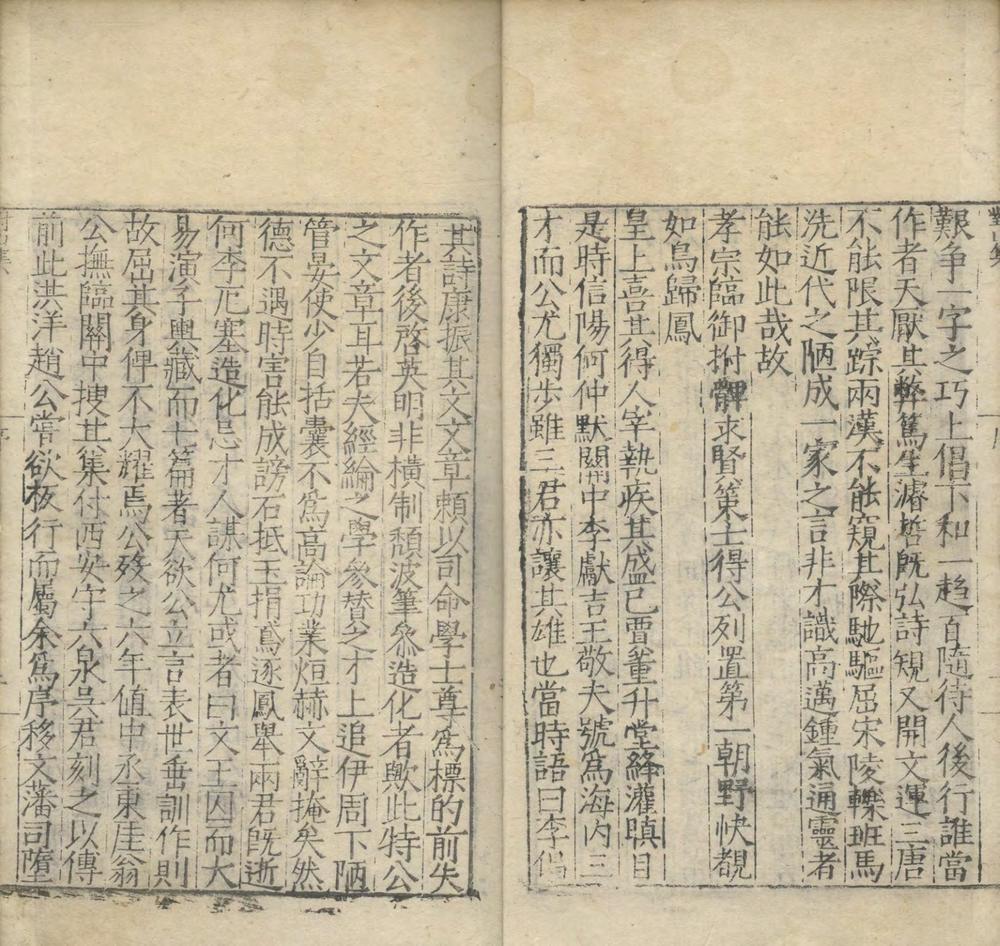 對山集
艱爭一字之巧上倡下和一趋百隨待人後行誰當
作者天厭其弊篤生濬哲旣弘詩規又開文運三唐
不能限其踪兩漢不能窺其際馳驅屈宋陵轢班馬
洗近代之陋成一家之言非才識高邁鍾氣通靈者
能如此哉故
孝宗臨御拊髀求賢第士得公列置第一朝野快覩
如鳥歸鳳
皇上喜其得人宰執疾其盛己賈董升堂絳灌瞋目
是時信陽何仲默關中李獻吉王敬夫號爲海内三
才而公尤獨步雖三君亦讓其雄也當時語曰李倡
其詩康振其文文章頼以司命學士尊爲標的前失
作者後啓英明非橫制頽波筆叅造化者歟此特公
之文章耳若夫經綸之學參賛之才上追伊周下陋
管晏使少自括囊不爲高論功業烜赫文辭掩矣然
德不遇時害能成謗石抵玉捐鳶逐鳳舉兩君旣逝
何李厄塞造化忌才人謀何尤或者曰文王囚而大
易演子輿藏而七篇著天欲公立言表世垂訓作則
故屈其身俾不大耀焉公歿之六年值中丞東厓翁
公撫臨關中搜其集付西安守六泉吳君刻之以傳
前此洪洋趙公嘗欲板行而屬余爲序移文藩司墮